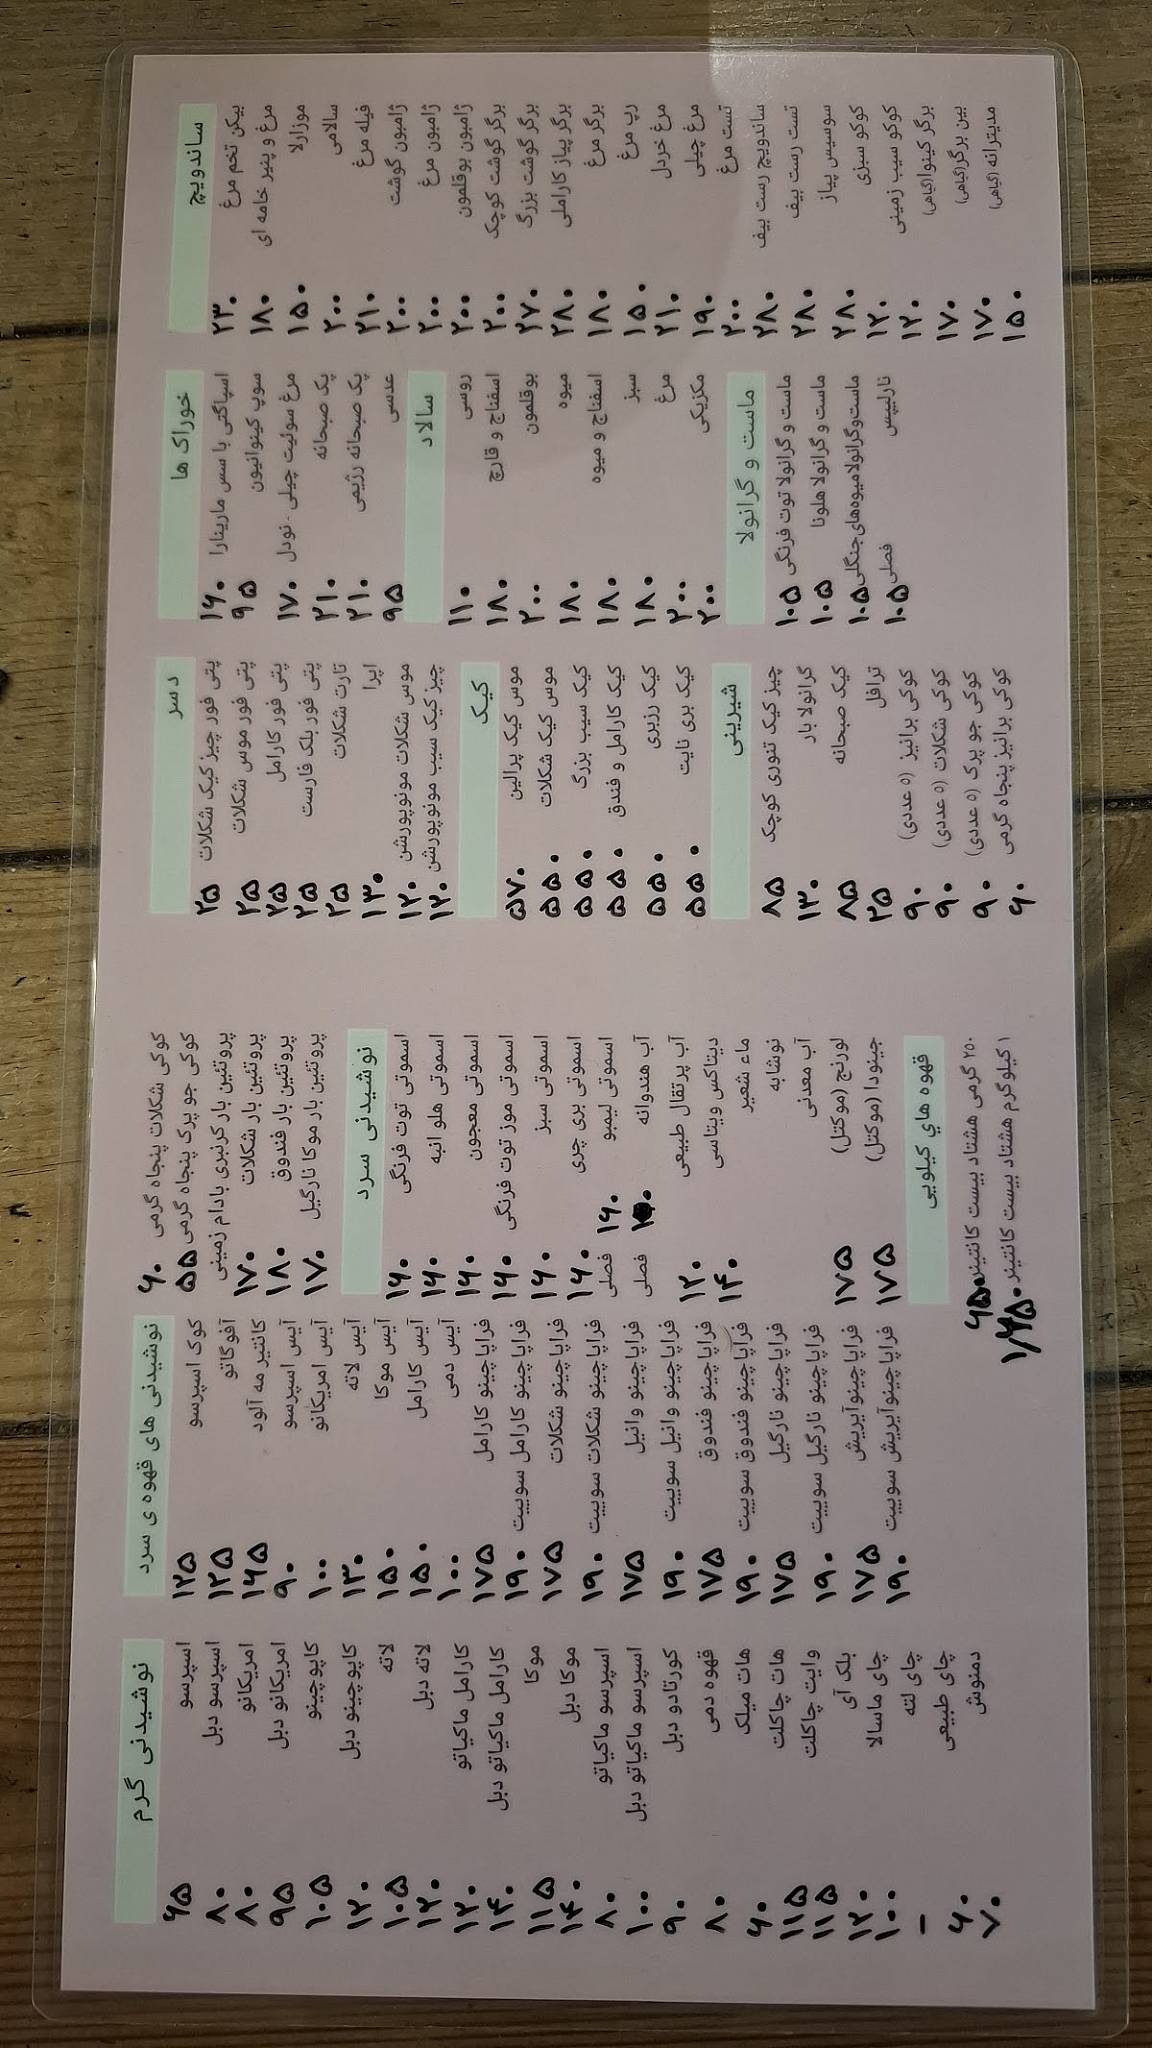 ساندویچ
بیکن تخم مرغ ۲۳۰
مرغ و پنیر خامه ای ۱۸۰
موزارلا ۱۵۰
سالامی ۲۰۰
فیله مرغ ۲۱۰
ژامبون گوشت ۲۰۰
ژامبون مرغ ۲۰۰
ژامبون بوقلمون ۲۰۰
برگر گوشت کوچک ۲۰۰
برگر گوشت بزرگ ۲۷۰
برگر پیاز کاراملی ۲۸۰
برگر مرغ ۱۸۰
رپ مرغ ۱۵۰
مرغ خردل ۲۱۰
مرغ چیلی ۱۹۰
تست مرغ ۲۰۰
ساندویچ رست بیف ۲۸۰
تست رست بیف ۲۸۰
سوسیس پیاز ۲۸۰
کوکو سبزی ۱۲۰
کوکو سیب زمینی ۱۲۰
برگر کینوا(گیاهی) ۱۷۰
بین برگر(گیاهی) ۱۷۰
مدیترانه (گیاهی) ۱۵۰
خوراک ها
اسپاگتی با سس مارینارا ۱۶۰
سوپ کینوانیون ۹۵
مرغ سولیت چیلی - نودل ۱۷۰
پک صبحانه ۲۱۰
پک صبحانه رژیمی ۲۱۰
عدسی ۹۵
سالاد
روسی ۱۱۰
اسفناج و قارچ ۱۸۰
بوقلمون ۲۰۰
میوه ۱۸۰
اسفناج و میوه ۱۸۰
سبز ۱۸۰
مرغ ۲۰۰
مکزیکی ۲۰۰
ماست و گرانولا
ماست و گرانولا توت فرنگی ۱۰۵
ماست و گرانولا هلونا ۱۰۵
ماست‌وگرانولامیوه‌های‌جنگلی ۱۰۵
نارلیپس فصلی ۱۰۵
دسر
پتی فور چیز کیک شکلات ۲۵
پتی فور موس شکلات ۲۵
پتی فور کارامل ۲۵
پتی فور بلک فارست ۲۵
تارت شکلات ۲۵
اپرا ۱۳۰
موس شکلات مونوپورشن ۱۲۰
چیز کیک سیب مونوپورشن ۱۲۰
کیک
موس کیک پرالین ۵۷۰
موس کیک شکلات ۵۵۰
کیک سیب بزرگ ۵۵۰
کیک کارامل و فندق ۵۵۰
کیک رزبری ۵۵۰
کیک بری نایت ۵۵۰
شیرینی
چیز کیک تنوری کوچک ۸۵
گرانولا بار ۱۳۰
کیک صبحانه ۸۵
ترافل ۲۵
کوکی برانیز (۵ عددی) ۹۰
کوکی شکلات (۵ عددی) ۹۰
کوکی جو پرک (۵ عددی) ۹۰
کوکی برانیز پنجاه گرمی ۶۰
کوکی شکلات پنجاه گرمی ۶۰
کوکی جو پرک پنجاه گرمی ۵۵
پروتئین بار کرنبری بادام زمینی
پروتئین بار شکلات ۱۷۰
پروتئین بار فندوق ۱۸۰
پروتئین بار موکا نارگیل ۱۷۰
نوشیدنی سرد
اسموتی توت فرنگی ۱۶۰
اسموتی هلو انبه ۱۶۰
اسموتی معجون ۱۶۰
اسموتی موز توت فرنگی ۱۶۰
اسموتی سبز ۱۶۰
اسموتی بری چری ۱۶۰
اسموتی لیمبو ۱۶۰ فصلی
آب هندوانه فصلی
آب پرتقال طبیعی ۱۲۰
دیتاکس ویتاسی ۱۴۰
ماء شعیر
نوشابه
آب معدنی
لورنج (موکتل) ۱۷۵
جینودا (موکتل) ۱۷۵
قهوه هاي کیلویی
۲۵۰ گرمی هشتاد بیست کانتینر ۴۵۰
۱ کیلوگرم هشتاد بیست کانتینر
نوشیدنی های قهوه ی سرد
کوک اسپرسو ۱۲۵
آفوگاتو ۱۲۵
کانتیر مه آلود ۱۶۵
آیس اسپرسو ۹۰
آیس امریکانو ۱۰۰
آیس لاته ۱۳۰
آیس موکا ۱۵۰
آیس کارامل ۱۵۰
آیس دمی ۱۰۰
فراپاچینو کارامل ۱۷۵
فراپاچینو کارامل سوییت ۱۹۰
فراپاچینو شکلات ۱۷۵
فراپاچینو شکلات سوییت ۱۹۰
فراپاچینو وانیل ۱۷۵
فراپاچینو وانیل سوییت ۱۹۰
فراپاچینو فندوق ۱۷۵
فراپاچینو فندوق سوییت ۱۹۰
فراپاچینو نارگیل ۱۷۵
فراپاچینو نارگیل سوییت ۱۹۰
فراپاچینوآیریش ۱۷۵
فراپاچینوآیریش سوییت ۱۹۰
نوشیدنی گرم
اسپرسو ۶۵
اسپرسو دبل ۸۰
امریکانو ۸۰
امریکانو دبل ۹۵
کاپوچینو ۱۰۵
کاپوچینو دبل ۱۲۰
لاته ۱۰۵
لاته دبل ۱۲۰
کارامل ماکیاتو ۱۲۰
کارامل ماکیاتو دبل ۱۴۰
موکا ۱۱۵
موکا دبل ۱۴۰
اسپرسو ماکیاتو ۸۰
اسپرسو ماکیاتو دبل ۱۰۰
کورتادو دبل ۹۰
قهوه دمی ۸۰
هات میلک ۶۰
هات چاکلت ۱۱۵
وایت چاکلت ۱۱۵
بلک آی ۱۲۰
چای ماسالا ۱۰۰
چای لته –
چای طبیعی ۶۰
دمنوش ۷۰